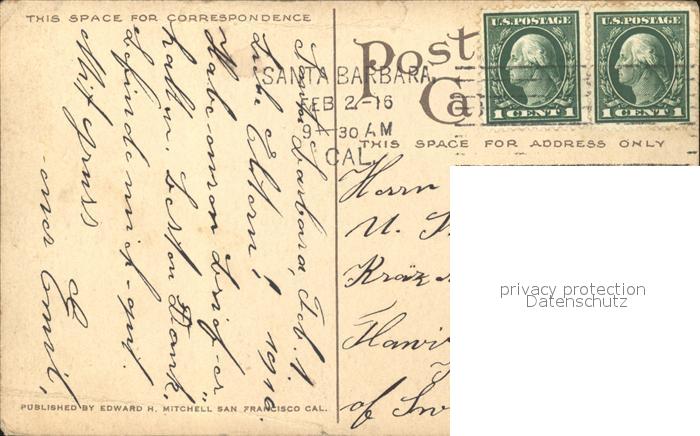 THIS SPACE FOR CORRESPONDENCE
Santa Barbara, Feb. 1. 1916.
Liebe Eltern!
Habe euren Brief er-
halten. Besten Dank.
Befinde mich gut.
Mit Gruss
euer Emil,
PUBLISHED BY EDWARD H. MITCHELL SAN FRANCISCO CAL.
Post
Ca
U.S. POSTAGE
1 CENT 1
U.S. POSTAGE
1 CENT 1
SANTA BARBARA,
FEB 2-16
9-30 AM
CAL.
THIS SPACE FOR ADDRESS ONLY
Herrn
U. S
Kräz
Hawi
of Sw
privacy protection
Datenschutz